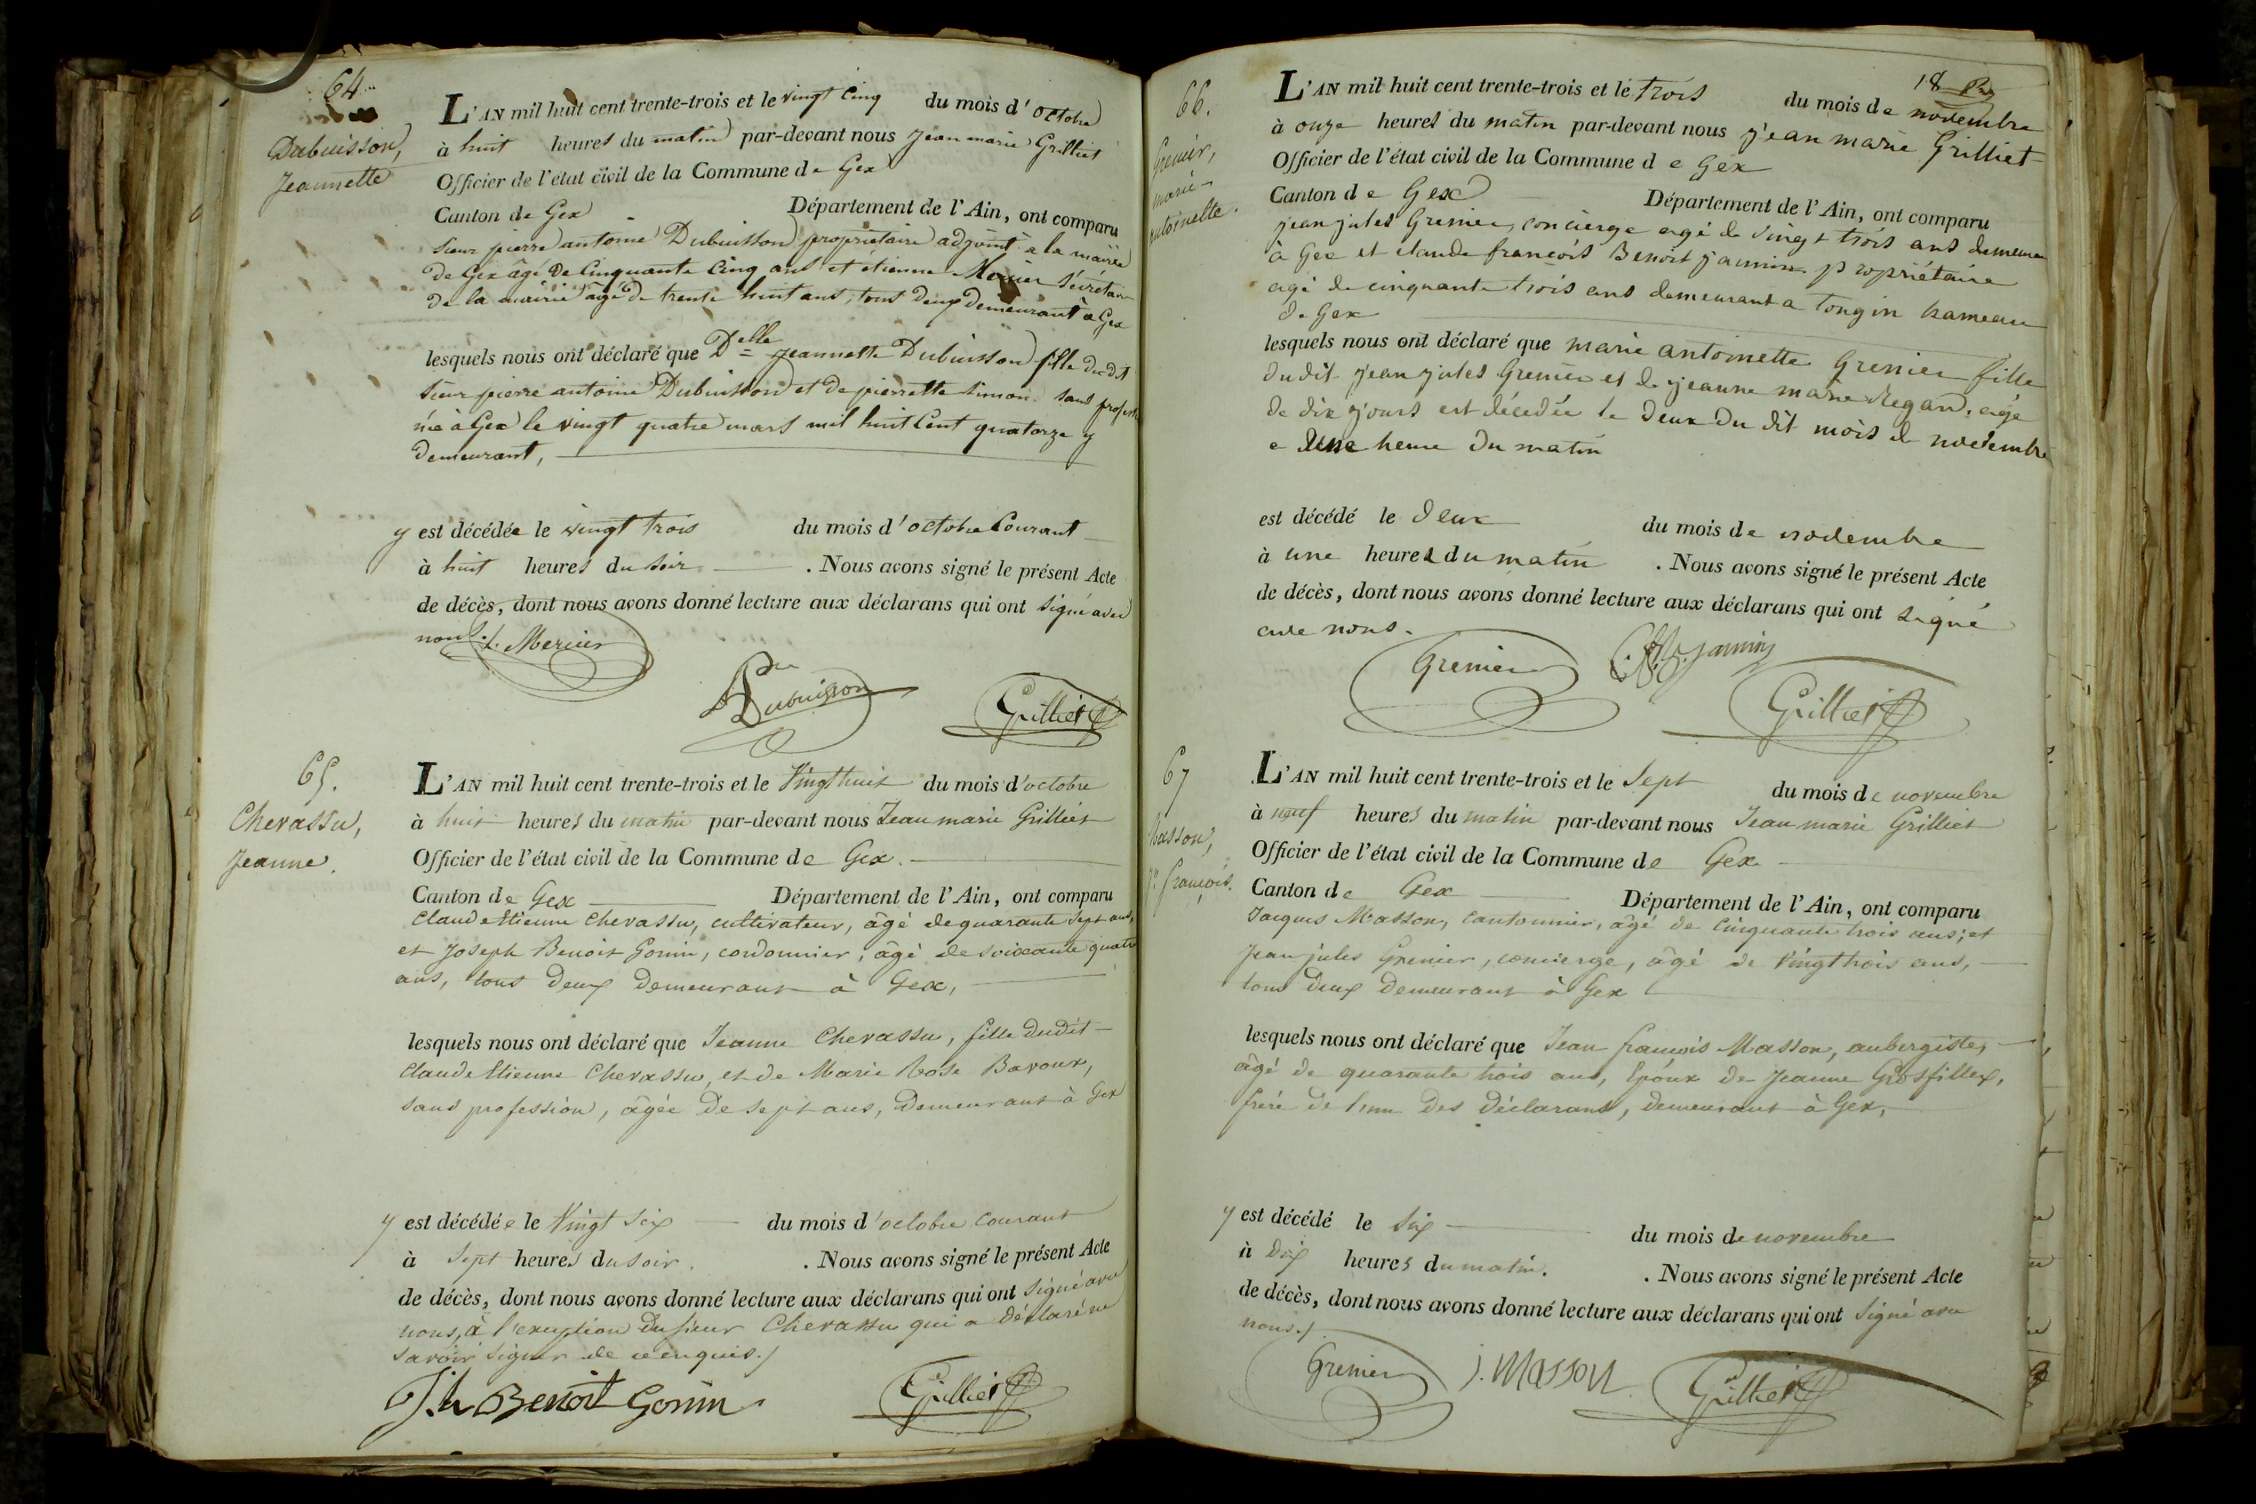 64
Dubuisson,
Jeannette
L'AN mil huit cent trente-trois et le vingt cinq du mois d'octobre
à huit heures du matin par-devant nous Jean marie Grilliet
Officier de l'état civil de la Commune de Gex
Canton de Gex Département de l'Ain, ont comparu
Sieur pierre antoine Dubuisson propriétaire adjoint à la mairie
de Gex âgé de Cinquante Cinq ans et étienne Mercier Sécrétaire
de la mairie âgé de trente huit ans, tous deux demeurant à Gex
lesquels nous ont déclaré que Delle Jeannette Dubuisson fille du dit
Sieur pierre antoine Dubuisson et de pierrette Simon sans profession
née à Gex le vingt quatre mars mil huit Cent quatorze y
demeurant,
y est décédée le vingt trois du mois d'octobre Courant
à huit heures du soir . Nous avons signé le présent Acte
de décès, dont nous avons donné lecture aux déclarans qui ont signé avec
nous.
Mercier
Dubuisson
Grilliet
65.
Chevassu,
Jeanne.
L'AN mil huit cent trente-trois et le Vingt huit du mois d'octobre
à huit heures du matin par-devant nous Jean marie Grilliet
Officier de l'état civil de la Commune de Gex.
Canton de Gex Département de l'Ain, ont comparu
Claude Etienne Chevassu, cultivateur, âgé de quarante sept ans,
et Joseph Benoit Gonin, cordonnier, âgé de soixante quatre
ans, tous deux demeurant à Gex,
lesquels nous ont déclaré que Jeanne Chevassu, fille dudit
Claude Etienne Chevassu, et de Marie Rose Bavoux,
sans profession, âgée de sept ans, demeurant à Gex
y est décédée le Vingt six du mois d'octobre courant
à sept heures du soir. . Nous avons signé le présent Acte
de décès, dont nous avons donné lecture aux déclarans qui ont signé avec
nous, à l'exception du sieur Chevassu qui a déclaré ne
savoir signer de ce enquis./
Jh Benoit Gonin
Grilliet
18
66.
Grenier,
marie
antoinette.
L'AN mil huit cent trente-trois et le trois du mois de novembre
à onze heures du matin par-devant nous jean marie Grilliet
Officier de l'état civil de la Commune de Gex
Canton de Gex Département de l'Ain, ont comparu
jean jules Grenier, concierge agé de vingt trois ans demeurant
à Gex et claude françois Benoit jannin propriétaire
agé de cinquante trois ans demeurant a tougin hameau
de Gex
lesquels nous ont déclaré que marie antoinette Grenier fille
dudit jean jules Grenier et de jeanne marie Regard, agé
de dix jours est décédée le deux du dit mois de novembre
a une heure du matin
est décédé le deux du mois de novembre
à une heures du matin . Nous avons signé le présent Acte
de décès, dont nous avons donné lecture aux déclarans qui ont signé
avec nous.
Grenier
jannin
Grilliet
67
Masson,
Jn françois.
L'AN mil huit cent trente-trois et le Sept du mois de novembre
à neuf heures du matin par-devant nous Jean marie Grilliet
Officier de l'état civil de la Commune de Gex
Canton de Gex Département de l'Ain, ont comparu
Jacques Masson, cantonnier, âgé de Cinquante trois ans; et
Jean jules Grenier, concierge, âgé de Vingt trois ans,
tous deux demeurant à Gex
lesquels nous ont déclaré que Jean françois Masson, aubergiste,
âgé de quarante trois ans, Epoux de Jeanne Grosfillex,
frère de l'un des déclarans, demeurant à Gex,
y est décédé le Six du mois de novembre
à Dix heures du matin. . Nous avons signé le présent Acte
de décès, dont nous avons donné lecture aux déclarans qui ont signé avec
nous./
Grenier
J. MASSON
Grilliet